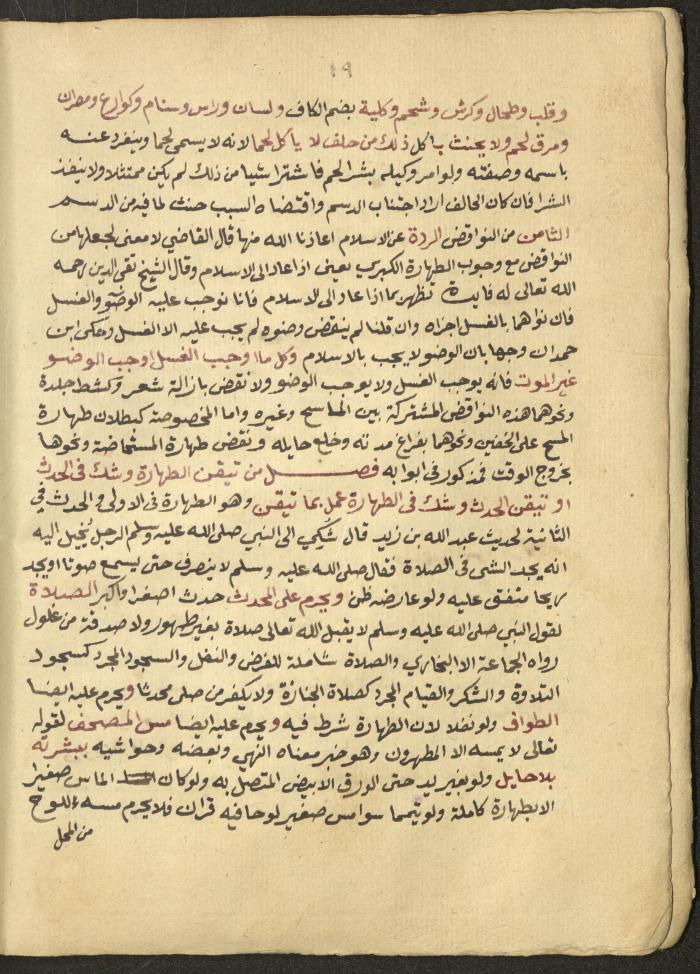 ١٩
وقلب وطحال وكرش وشحم وكلية بضم الكاف ولسان وراس وسنام وكوارع ومصران
ومرق لحم ولا يحنث باكل ذلك من حلف لا ياكل لحما لانه لا يسمى لحما وينفرد عنه
باسمه وصفته ولو امر وكيله بشرا لحم فاشترا شيا من ذلك لم يكن ممتثلا ولا ينفذ
الشرا فان كان الحالف اراد اجتناب الدسم واقتضاه السبب حنث لما فيه من الدسم
الثامن من النواقض الردة عن الاسلام اعاذنا الله منها قال القاضي لا معنى لجعلها من
النواقض مع وجوب الطهارة الكبرى يعني اذا عاد الى الاسلام وقال الشيخ تقي الدين رحمه
الله تعالى له فايدة تظهر بما اذا عاد الى الاسلام فانا نوجب عليه الوضو والغسل
فان نواهما بالغسل اجزاه وان قلنا لم ينتقض وضوه لم يجب عليه الا الغسل وحكى ابن
حمدان وجها بان الوضو لا يجب بالاسلام وكل ما اوجب الغسل اوجب الوضو
غير الموت فانه يوجب الغسل ولا يوجب الوضو ولا نقض بازالة شعر وكشط جلدة
ونحوهما هذه النواقض المشتركة بين الماسح وغيره واما المخصوصة كبطلان طهارة
المسح على الخفين ونحوهما بفراغ مدته وخلع حايله ونقض طهارة المستحاضة ونحوها
بخروج الوقت فمذكور في ابوابه فصل من تيقن الطهارة وشك في الحدث
او تيقن الحدث وشك في الطهارة عمل بما تيقن وهو الطهارة في الاولى والحدث في
الثانية لحديث عبد الله بن زيد قال شكي الى النبي صلى الله عليه وسلم الرجل يخيل اليه
انه يجد الشي في الصلاة فقال صلى الله عليه وسلم لا ينصرف حتى يسمع صوتا او يجد
ريحا متفق عليه ولو عارضه ظن ويحرم على المحدث حدث اصغر او اكبر الصلاة
لقول النبي صلى الله عليه وسلم لا يقبل الله تعالى صلاة بغير طهور ولا صدقة من غلول
رواه الجماعة الا البخاري والصلاة شاملة للفرض والنفل والسجود المجرد كسجود
التلاوة والشكر والقيام المجرد كصلاة الجنازة ولا يكفر من صلى محدثا ويحرم عليه ايضا
الطواف ولو نفلا لان الطهارة شرط فيه ويحرم عليه ايضا مس المصحف لقوله
تعالى لا يمسه الا المطهرون وهو خبر معناه النهي وبعضه وحواشيه ببشرته
بلا حايل ولو بغير يد حتى الورق الابيض المتصل به ولو كان الماس صغيرا
الا بطهارة كاملة ولو تيمما سوا مس صغير لوحا فيه قران فلا يحرم مسه اللوح
من المحل